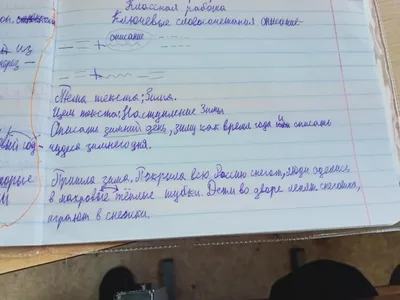 Классная работа
Ключевые словосочетания описание
описание
из
Тема текста: Зима.
Цель текста: Наступление Зимы
Описать зимний день, зиму как время года и описать
чудеса зимней
Пришла зима. Покрыла всю Россию снегом, люди оделись
в махровые тёплые шубки. Дети во дворе лепят снеговика,
играют в снежки.